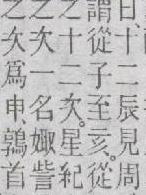 曰、十二辰見周
謂從子至亥。從
之十二次。星紀
之次一名娵訾
之次爲申、鶉首